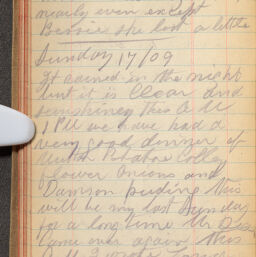 nearly even except
Bessie she lost a little
Sunday 17/09
It rained in the night
but it is Clear and
sunshiney this A M
1 PM we have had a
very good dinner of
Potatoes Colley
flower Onions and
Damson puding this
will be my last Sunday
for a long time Mr
Came over again this